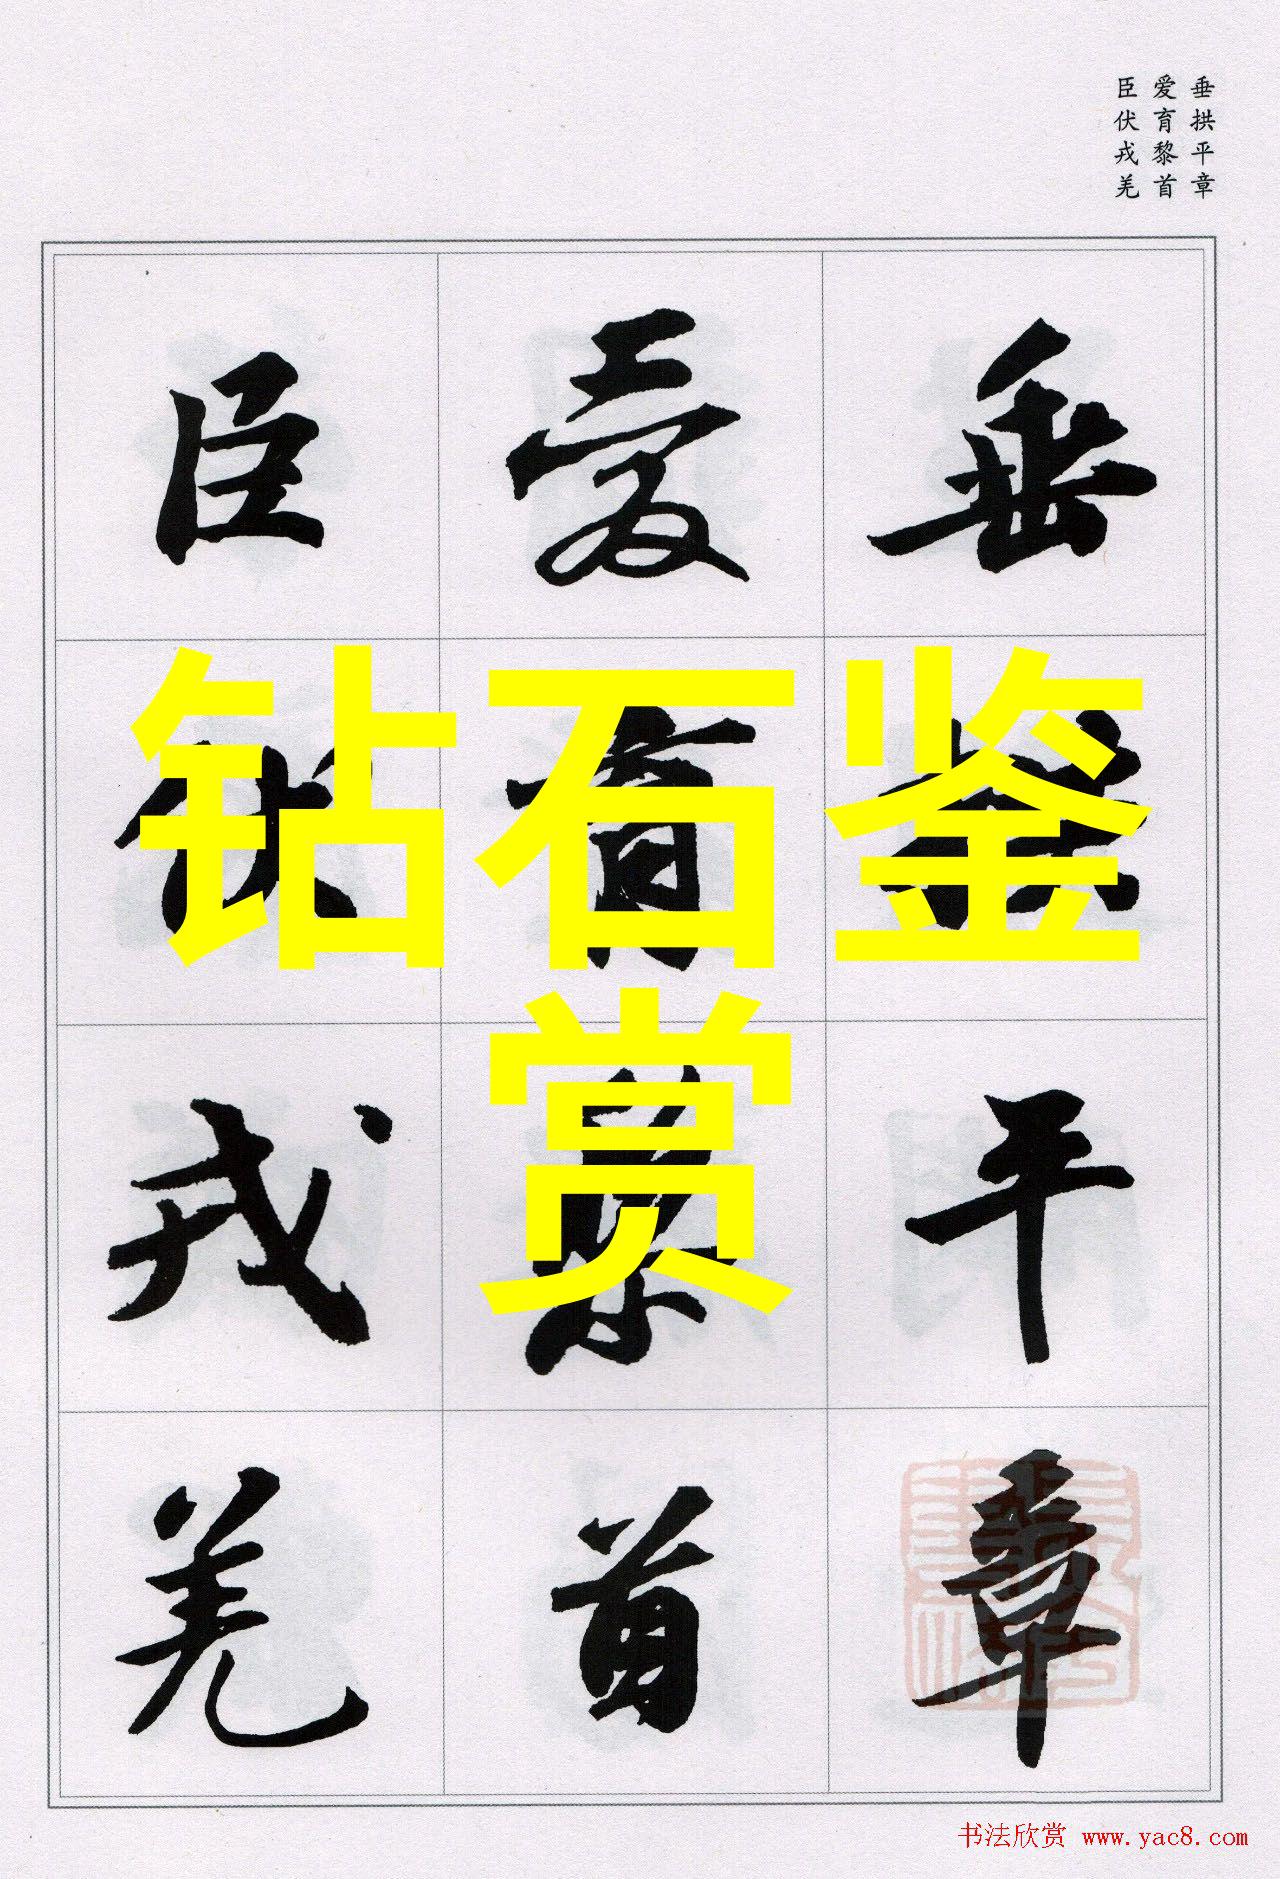 垂拱平章
爱育黎首
臣伏戎羌
垂拱平章
爱育黎首
臣伏戎羌
钻石鉴
赏
书法欣赏 www.yac8.com